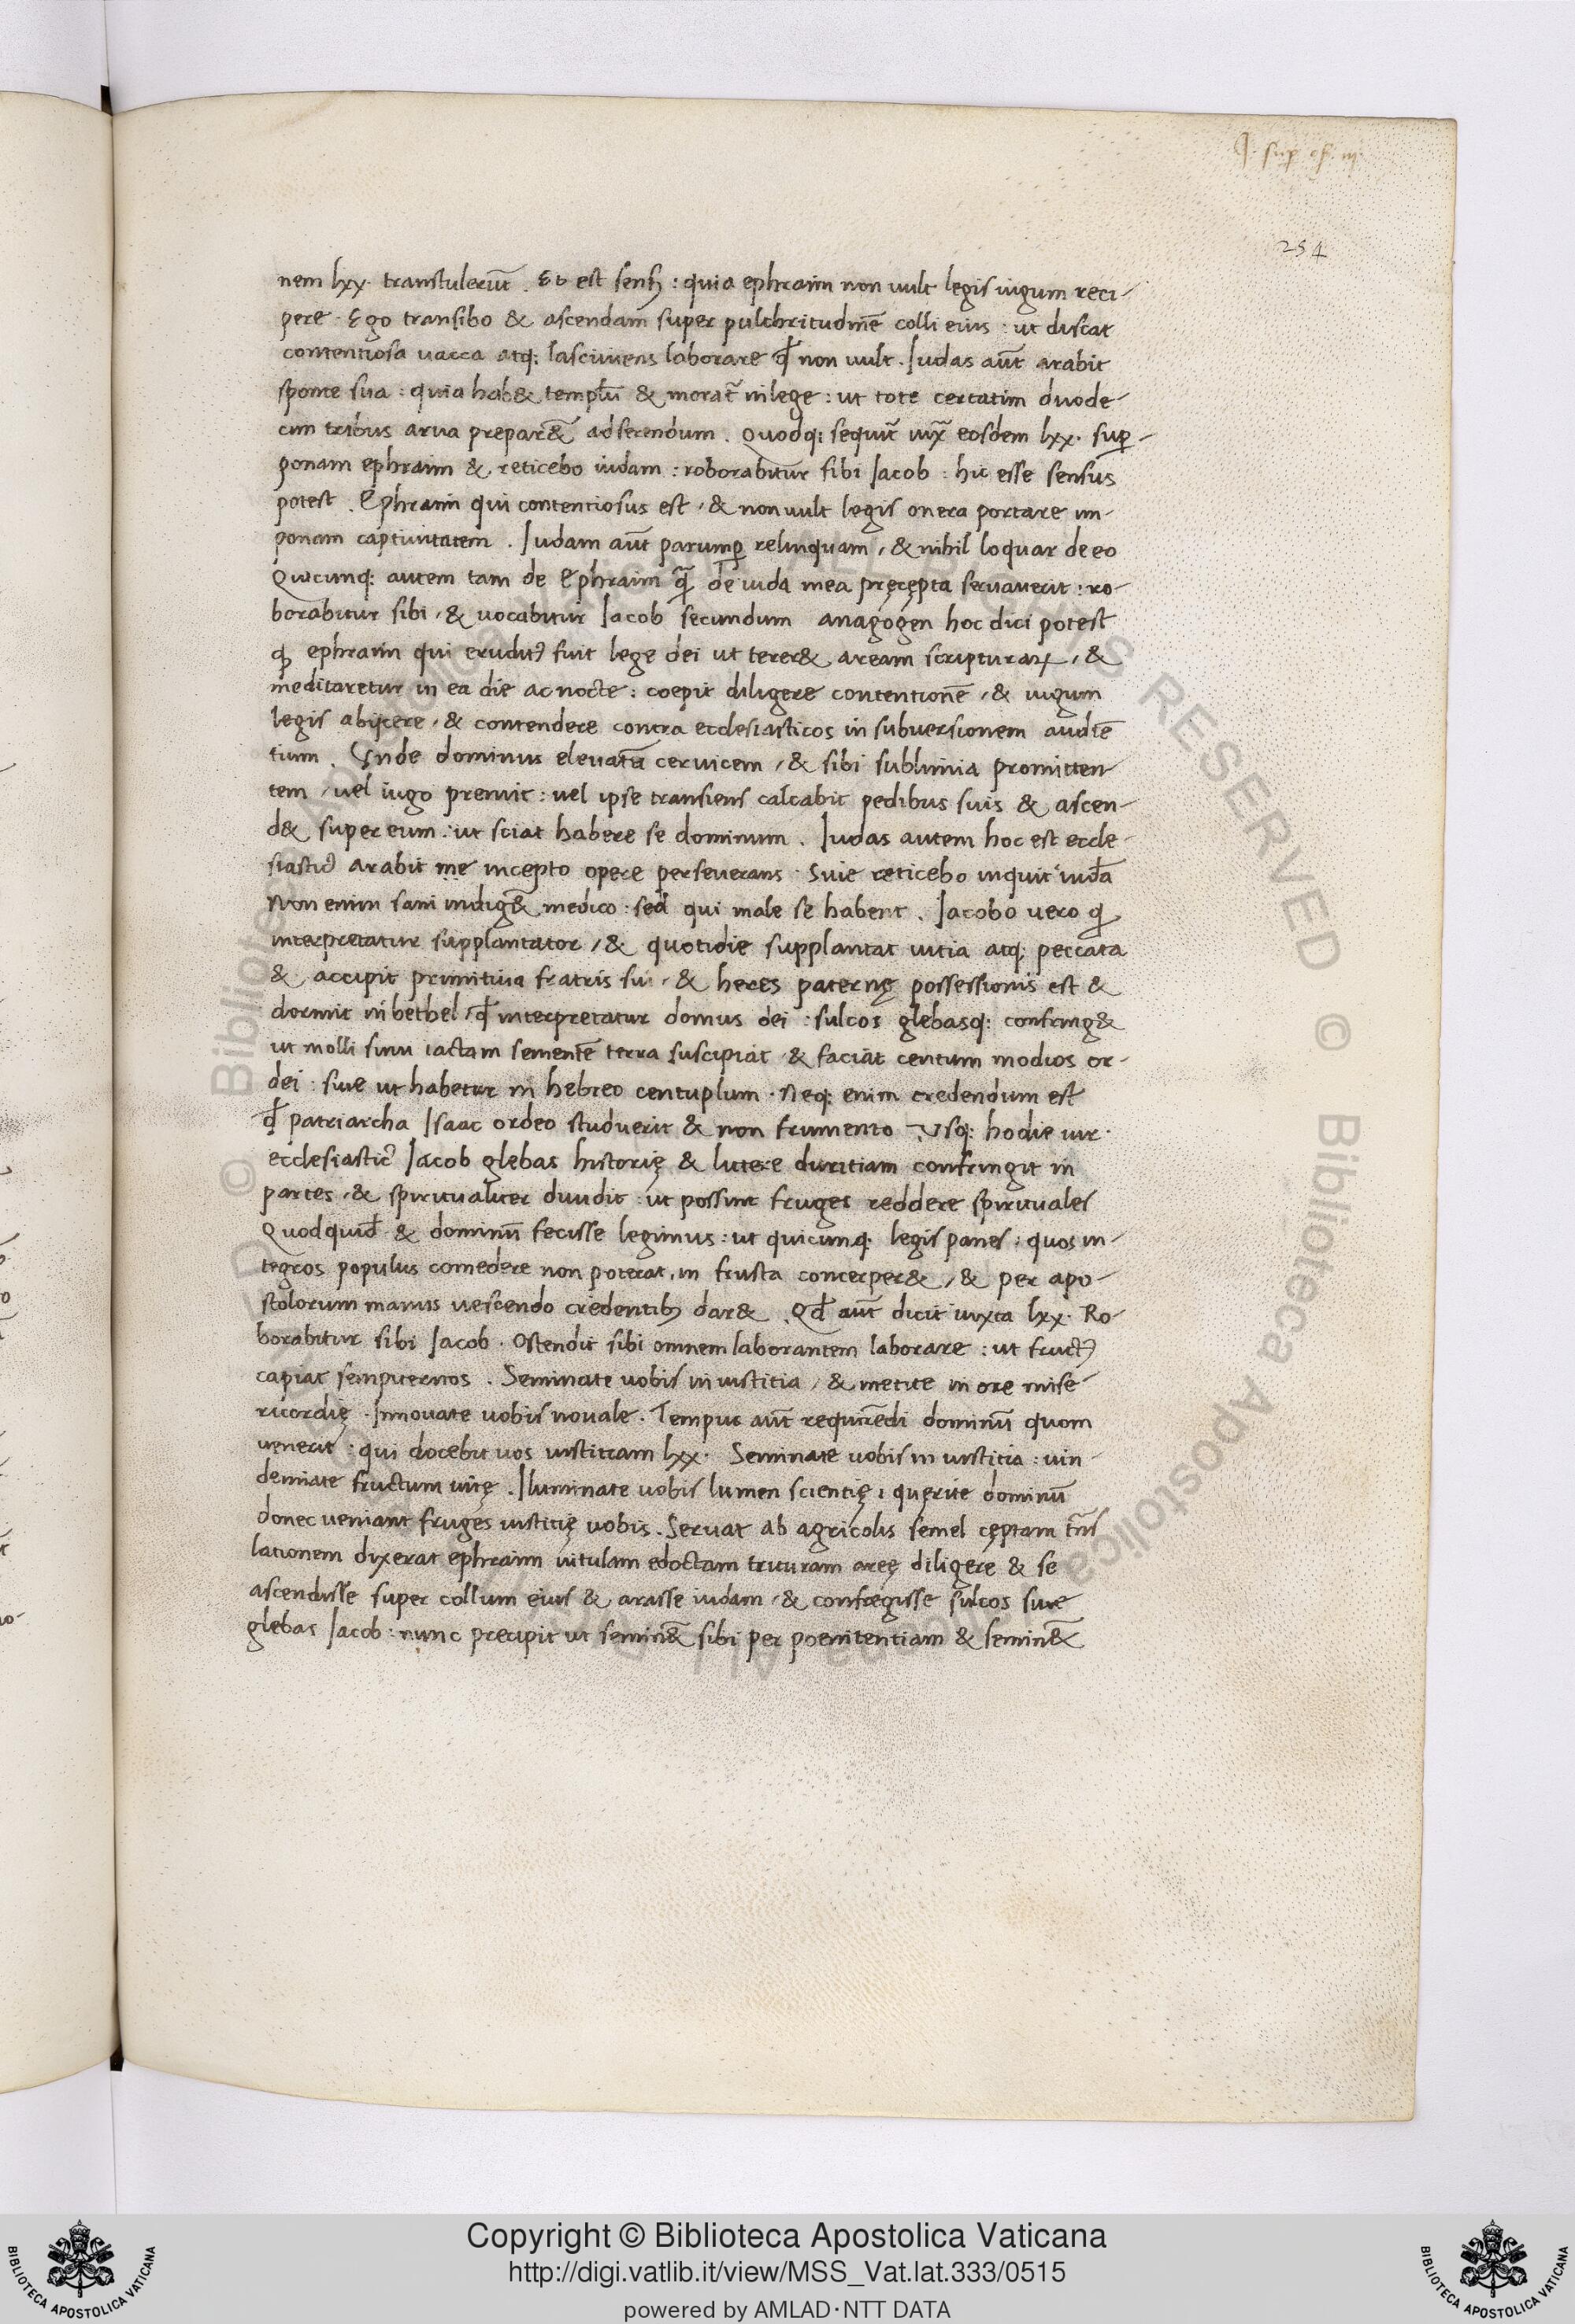 ꝗ. sup
254
nem lxx. transtulerūt. Et est sensꝰ: quia ephraim non uult legis iugum reci-
pere. Ego transibo & ascendam super pulchritudinē colli eius: ut discat
contentiosa uacca atq; lasciuiens laborare qđ non uult. Iudas aūt arabit
sponte sua: quia hab& templū & morat̄ in lege: ut tote certatim duode-
cim tribus arua prepar&̄ ad serendum. Quodq; sequit̄ iux̄ eosdem lxx. suꝑ-
ponam ephraim & reticebo iudam: roborabitur sibi Iacob: hic esse sensus
potest. Ephraim qui contentiosus est, & non uult legis onera portare im-
ponam captiuitatem. Iudam aūt parumꝑ relinquam, & nihil loquar de eo
Quicunq; autem tam de Ephraim q̄ de iuda mea pręcępta seruauerit: ro-
borabitur sibi, & uocabitur Iacob secundum anagogen hoc dici potest
ꝙ ephraim qui eruditꝰ fuit lege dei ut terer& aream scripturaꝝ, &
meditaretur in ea die ac nocte: coepit diligere contentionē, & iugum
legis abijcere, & contendere contra ecclesiasticos in subuersionem audiē
tium. Unde dominus eleuatā ceruicem, & sibi sublimia promitten-
tem, uel iugo premit: uel ipse transiens calcabit pedibus suis & ascen-
d& super eum: ut sciat habere se dominum. Iudas autem hoc est eccle-
siasticꝰ arabit in incepto opere perseuerans. Siue reticebo inquit iudā
Non enim sani indig&̄ medico: sed qui male se habent. Iacobo uero q
interpretatur supplantator, & quotidie supplantat uitia atq; peccata
& accipit primitiua fratris sui, & heres paternę possessionis est &
dormit in bethel, qđ interpretatur domus dei: sulcos glebasq; confring&
ut molli sinu iactam sementē terra suscipiat, & faciat centum modios or-
dei: siue ut habetur in hebreo centuplum. Neq; enim credendum est
qđ patriarcha Isaac ordeo studuerit & non frumento. Usq; hodie uir
ecclesiasticꝰ Iacob glebas historię & littere duritiam confringit in
partes, & spiritualiter diuidit: ut possint fruges reddere spirituales
Quod quid & dominū fecisse legimus: ut quicunq; legis panes: quos in-
tegros populus comedere non poterat, in frusta concerper&, & per apo-
stolorum manus uescendo credentibꝫ dar&. Qđ aūt dicit iuxta lxx. Ro-
borabitur sibi Iacob. Ostendit sibi omnem laborantem laborare: ut fructꝰ
capiat sempiternos. Seminate uobis in iustitia, & metite in ore mise-
ricordię. Innouate uobis nouale. Tempus aūt requirēdi dominū quom
uenerit: qui docebit uos iustitiam lxx. Seminate uobis in iustitia: uin-
demiate fructum uitę. Iluminate uobis lumen scientię: quęrite dominū
donec ueniant fruges iustitię uobis. Seruat ab agricolis semel cęptam trās
lationem dixerat ephraim uitulam edoctam trituram areę diligere & se
ascendisse super collum eius & arasse iudam, & confregisse sulcos siue
glebas Iacob: nunc precipit ut semin&̄ sibi per poenitentiam & semin&̄
Copyright © Biblioteca Apostolica Vaticana
http://digi.vatlib.it/view/MSS_Vat.lat.333/0515
powered by AMLAD·NTT DATA
BIBLIOTECA APOSTOLICA VATICANA
BIBLIOTECA APOSTOLICA VATICANA